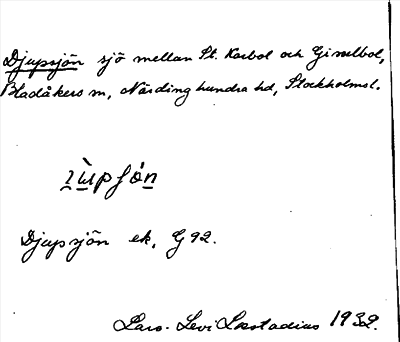 Djupsjön sjö mellan St. Karbol och Gimelbol,
Bladåkers sn, Närdinghundra hd, Stockholms l.
Djupsjön ek. G 92.
Lars-Levi Læstadius 1932.